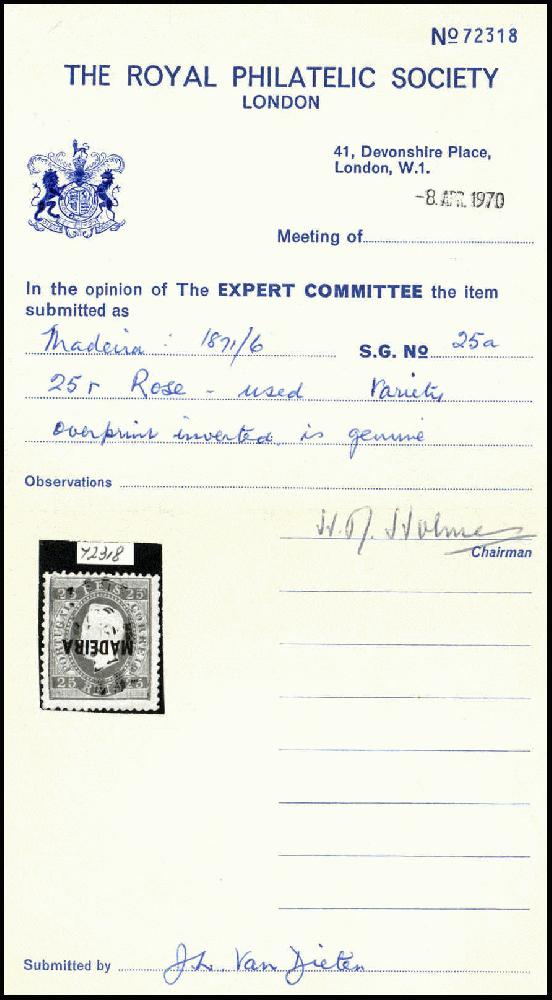 Nº 72318
THE ROYAL PHILATELIC SOCIETY
LONDON
41, Devonshire Place,
London, W.1.
-8. APR. 1970
Meeting of
In the opinion of The EXPERT COMMITTEE the item
submitted as
Madeira : 1871/6 S.G. Nº 25a
25 r Rose - used Variety
overprint inverted is genuine
Observations
H. R. Holmes
Chairman
72318
25 REIS 25
PORTUGAL CORREIO
MADEIRA
25 25
Submitted by J.L. Van Dieten